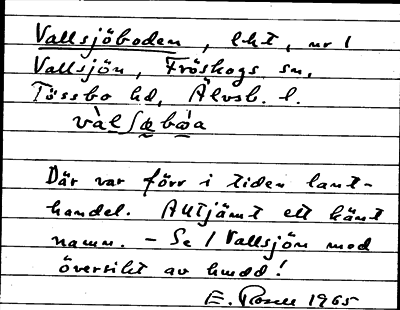 Vallsjöboden, lht, nr 1
Vallsjön, Fröskogs sn,
Tössbo hd, Älvsb. l.
vàlʃœ̠bòa
Där var förr i tiden lant-
handel. Alltjämt ett känt
namn. – Se / Vallsjön med
översikt av hmdd!
E. Rosell 1965